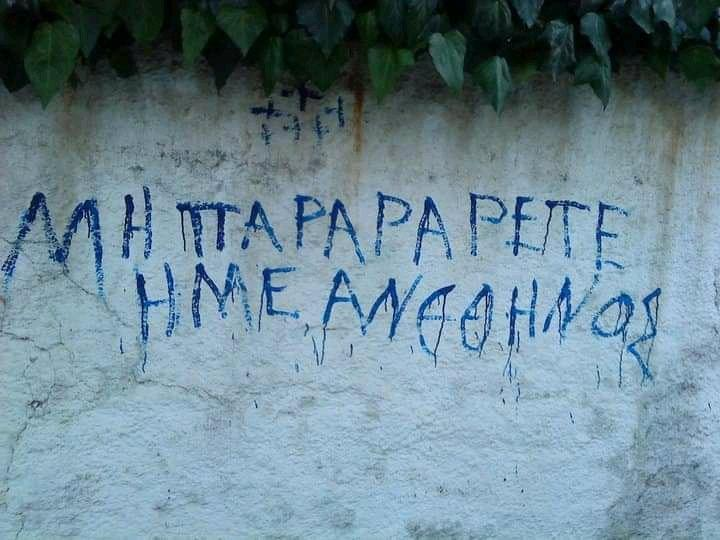 ΜΗ ΠΑΡΑΡΑΡΕΤΕ
ΗΜΕ ΑΝΕΘΗΝΟΣ